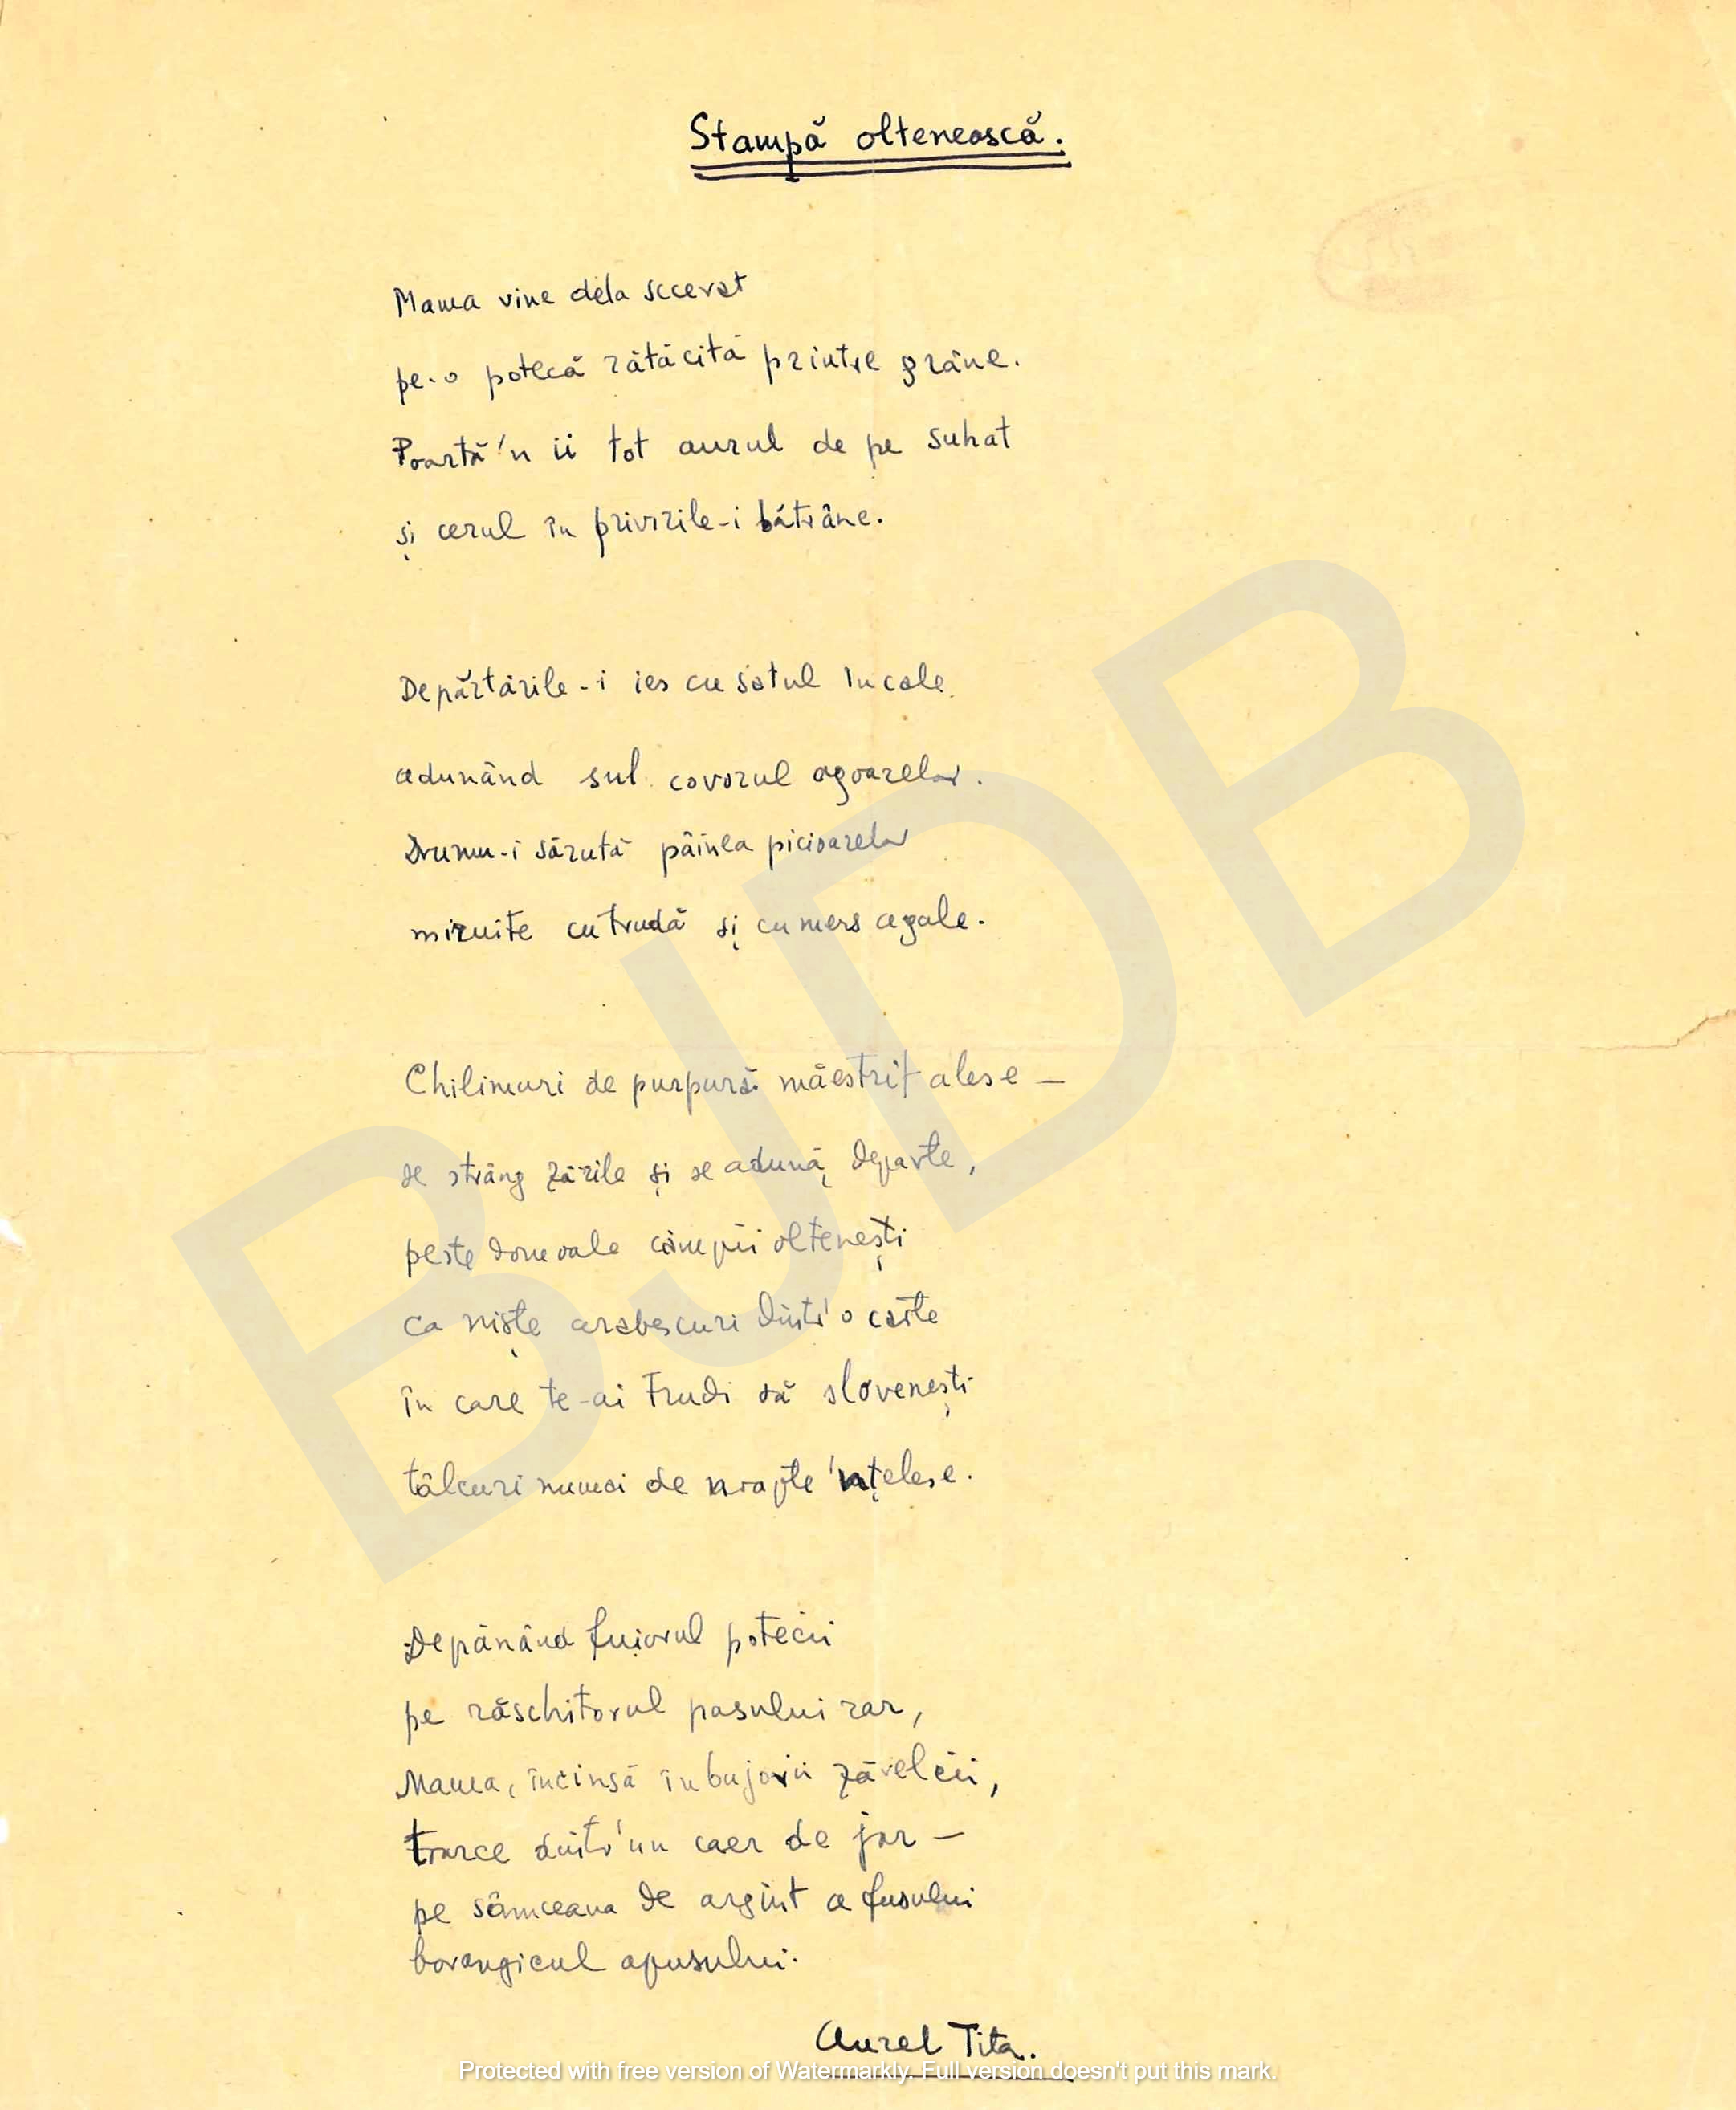 Stampă oltenească.
Mama vine dela secerat
pe-o potecă rătăcită printre grâne.
Poartă'n ii tot aurul de pe suhat
și cerul în privirile-i bătrâne.
Depărtările-i ies cu satul în cale
adunând sul covorul ogoarelor.
Drumu-i sărută pâinea picioarelor
miruite cu trudă și cu mers agale.
Chilimuri de purpură măestrit alese —
se strâng zările și se adună, departe,
peste domoale câmpii oltenești
ca niște arabescuri dintr'o carte
în care te-ai trudi să slovenești
tâlcuri numai de noapte 'nțelese.
Depănând fuiorul potecii
pe răschitorul pasului rar,
Mama, încinsă în bujorii zăvelcii,
toarce dintr'un caer de jar —
pe sâmceaua de argint a fusului
borangicul apusului.
Aurel Tita.
BJDB
Protected with free version of Watermarkly. Full version doesn't put this mark.